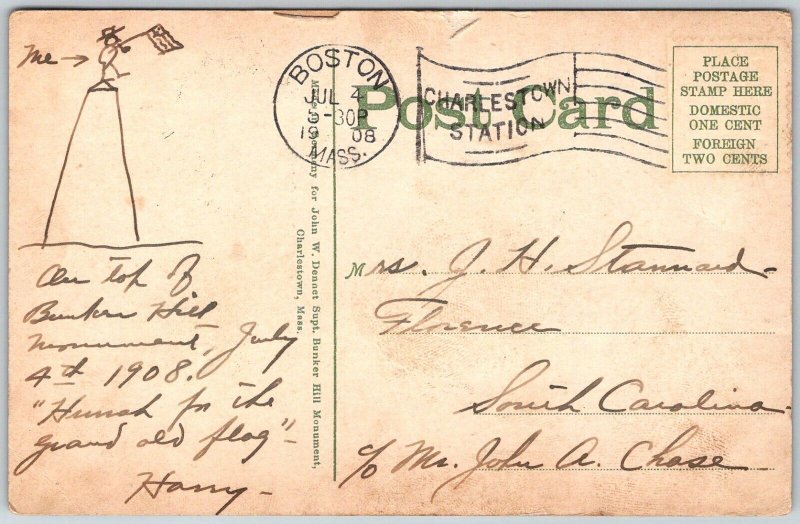 Me →
On top of
Bunker Hill
monument, July
4th 1908.
"Hurrah for the
grand old flag" -
Harry -
Made in Germany for John W. Dennet Supt. Bunker Hill Monument,
Charlestown, Mass.
BOSTON
JUL 4
5-30P
1908
MASS.
CHARLESTOWN
STATION
Post Card
PLACE
POSTAGE
STAMP HERE
DOMESTIC
ONE CENT
FOREIGN
TWO CENTS
Mrs. J. H. Stannard -
Florence
South Carolina -
c/o Mr. John A. Chase